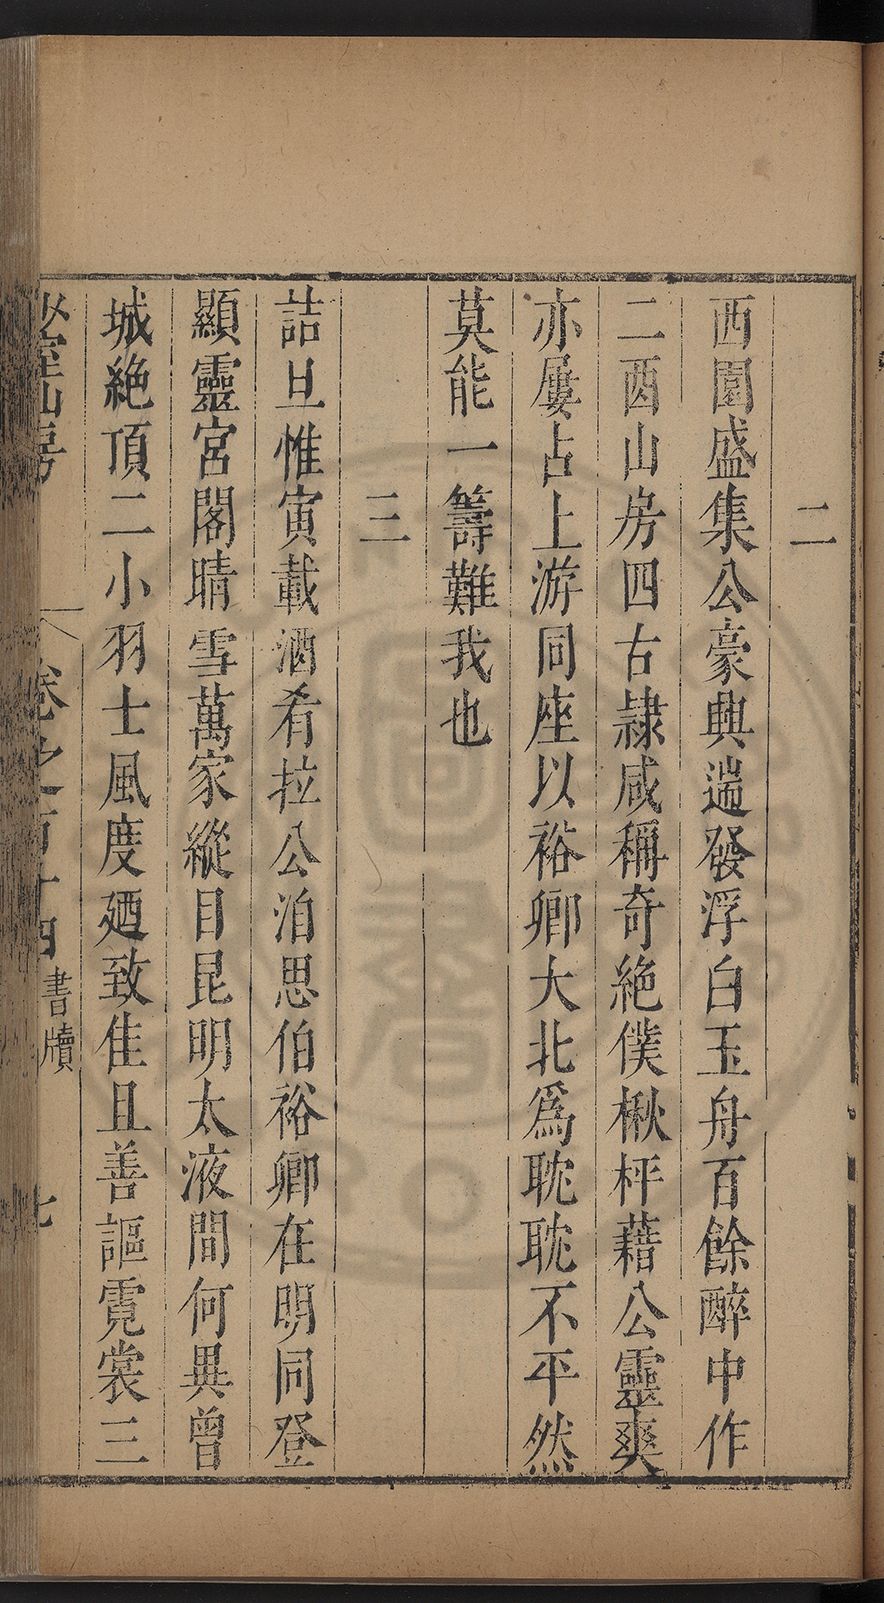 二
西園盛集公豪興遄發浮白玉舟百餘醉中作
二酉山房四古隷咸稱奇絶僕楸枰藉公靈爽
亦屢占上游同座以裕卿大北爲耽耽不平然
莫能一籌難我也
三
詰旦惟寅載酒肴拉公洎思伯裕卿在明同登
顯靈宮閣晴雪萬家縱目昆明太液間何異曾
城絶頂二小羽士風度廼致佳且善謳霓裳三
山房 卷之百十四 書牘 七